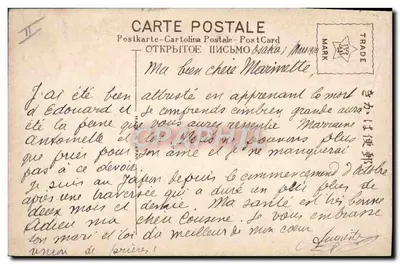 CARTE POSTALE
Postkarte-Cartolina Postale-PostCard
ОТКРЫТОЕ ПИСЬМО
TRADE
MARK
きかは便郵
II
Osaka,
Ma bien chère Marinette,
J'ai été bien attristé en apprenant la mort
d'Edouard et je comprends combien grande aura
été la peine que vous aurez ressentie Marraine
Antoinette et toi. Nous ne pouvons plus
que prier pour son âme et je ne manquerai
pas à ce devoir.
Je suis au Japon depuis le commencement d'octobre
après une traversée qui a duré un peu plus de
deux mois et demie. Ma santé est très bonne
Adieu ma chère cousine. Je vous embrasse
ton mari et toi du meilleur de mon cœur
union de prières!